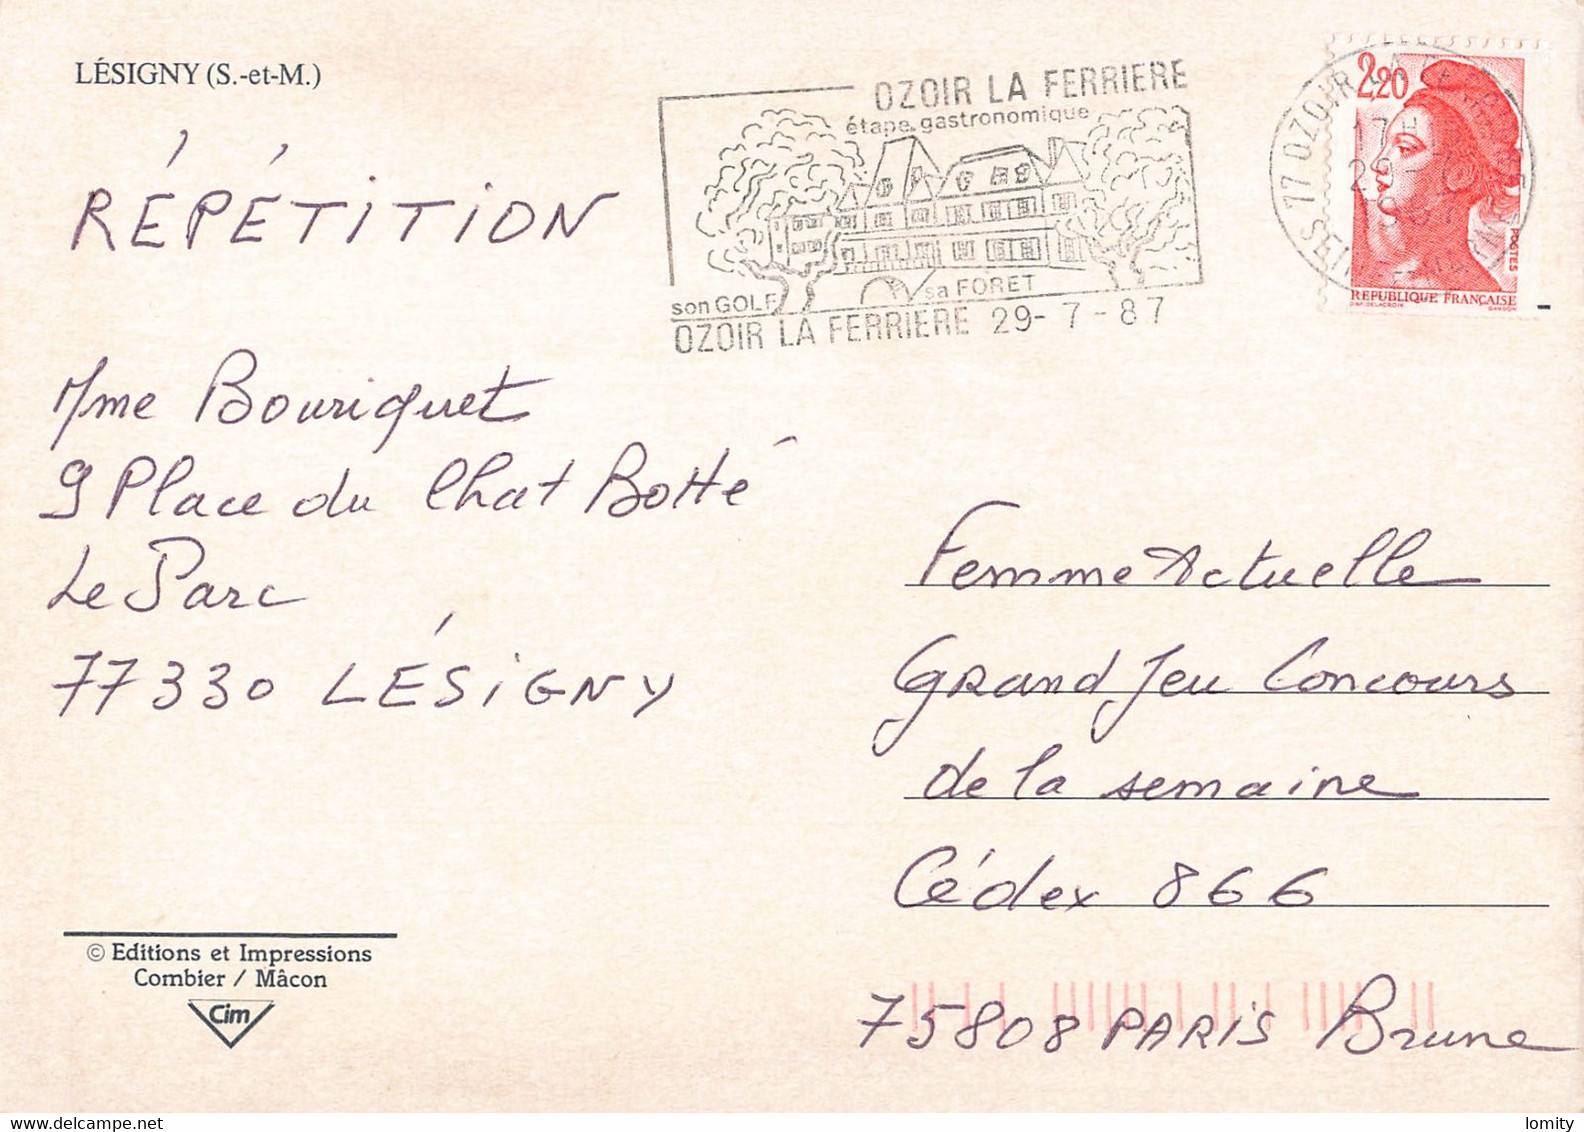 LÉSIGNY (S.-et-M.)
RÉPÉTITION
OZOIR LA FERRIERE
étape gastronomique
son GOLF
sa FORET
OZOIR LA FERRIERE 29-7-87
77 OZOIR LA FERRIERE
17H
29-
SEINE ET MARNE
2,20
POSTES
REPUBLIQUE FRANÇAISE
DAP. DELACROIX
GANDON
Mme Bouriquet
9 Place du Chat Botté
Le Parc
77330 LÉSIGNY
Femme Actuelle
Grand Jeu Concours
de la semaine
Cédex 866
75808 PARIS Brune
© Editions et Impressions
Combier / Mâcon
Cim
delcampe.net
lomity